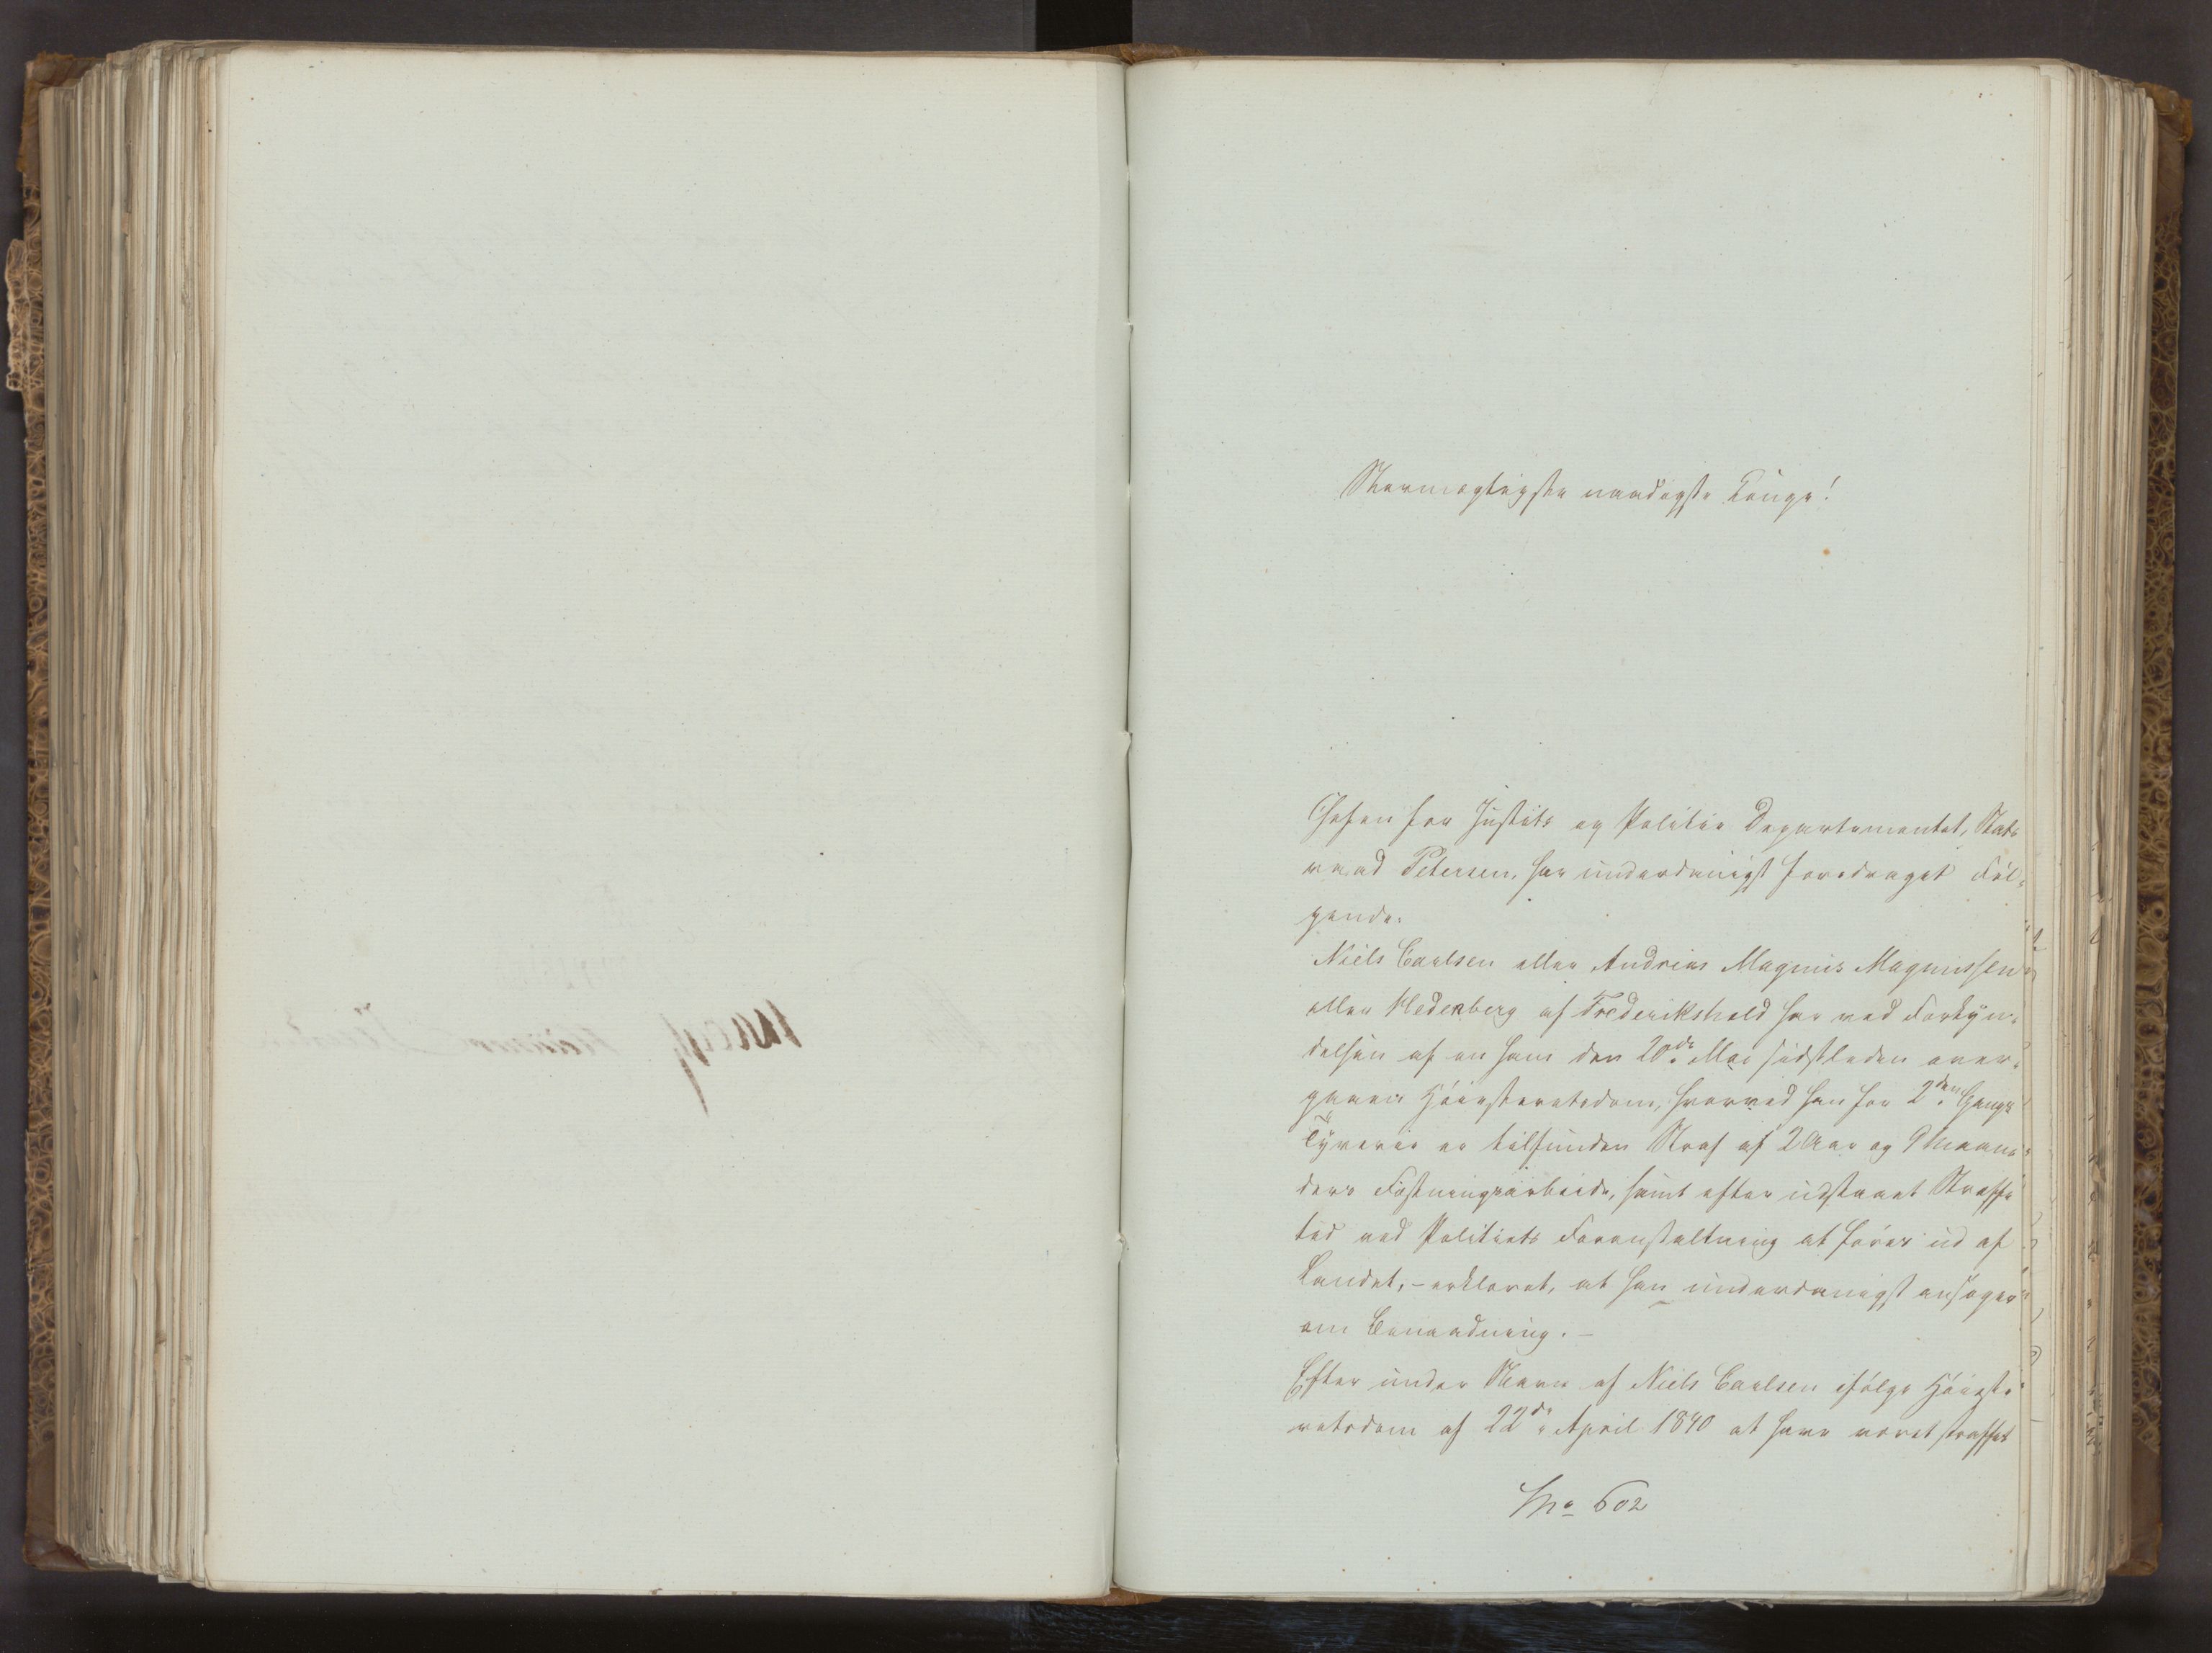 Stormægtigste naadigste Konge!
Chefen for Justits og Politie Departementet, Stats
raad Petersen, har underdanigst foredraget Föl-
gende:
Niels Carlsen eller Andreas Magnus Magnussen
eller Hedenberg af Frederikshald har ved Forkyn-
delsen af en ham den 20de Mai sidstleden over-
gaaen Höiesteretsdom, hvorved han for 2den Gangs
Tyverie er tilfunden Straf af 2 Aar og 9 Maane-
ders Fæstningsarbeide, samt efter udstaaet Straffe
tid ved Politiets Foranstaltning at föres ud af
Landet, - erklæret, at han underdanigst ansöger
om Benaadning. -
Efter under Navn af Niels Carlsen ifölge Höieste-
retsdom af 22de April 1840 at have været straffet
No 602